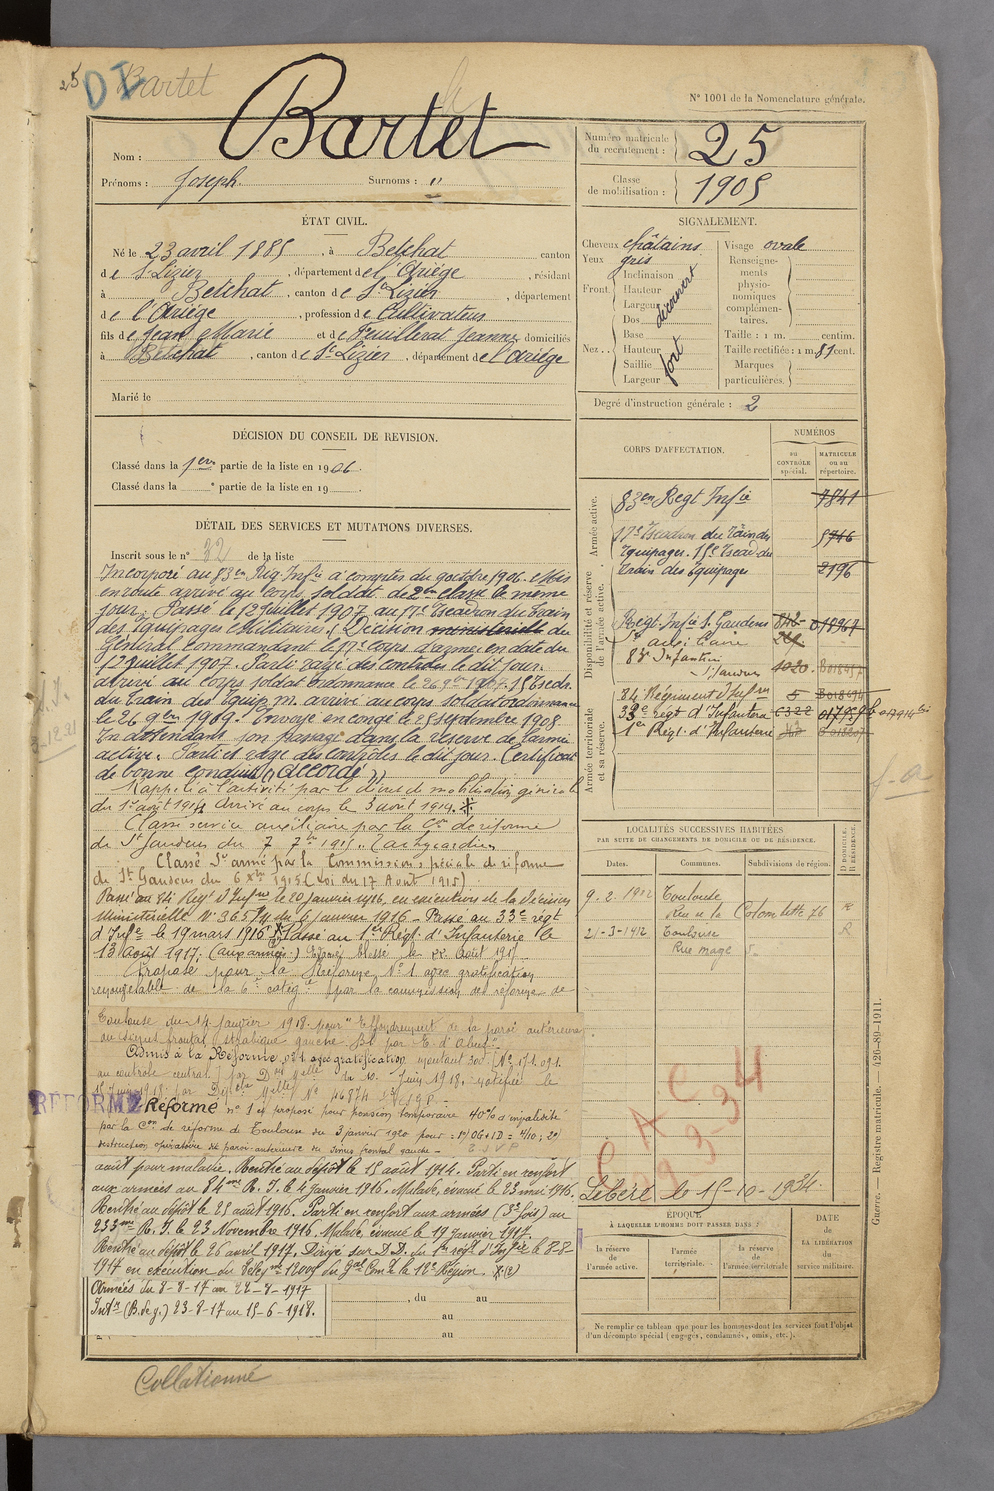 25 DI Bartet
N° 1001 de la Nomenclature générale.
Nom : Bartet
Prénoms : Joseph Surnoms : "
Numéro matricule du recrutement : 25
Classe de mobilisation : 1905
ÉTAT CIVIL.
Né le 23 avril 1885, à Betchat canton
de St Lizier, département de l'Ariège, résidant
à Betchat, canton de St Lizier, département
de l'Ariège, profession de Cultivateur
fils de Jean Marie et de Fuillerat Jeanne domiciliés
à Betchat, canton de St Lizier, département de l'Ariège
Marié le
SIGNALEMENT.
Cheveux châtains Visage ovale
Yeux gris
Front Inclinaison Hauteur Largeur découvert
Nez Dos Base Hauteur Saillie Largeur fort
Renseignements physionomiques complémentaires.
Taille : 1 m. centim.
Taille rectifiée : 1 m. 81 cent.
Marques particulières.
Degré d'instruction générale : 2
DÉCISION DU CONSEIL DE REVISION.
Classé dans la 1ere partie de la liste en 1906.
Classé dans la e partie de la liste en 19
DÉTAIL DES SERVICES ET MUTATIONS DIVERSES.
Inscrit sous le n° 32 de la liste
Incorporé au 83en Rég. Infie à compter du 9 octobre 1906. Mis
en route arrivé au corps, soldat de 2en classe le même
jour. Passé le 12 juillet 1907 au 17e Escadron du Train
des Equipages Militaires. (Décision ministérielle du
Général commandant le 17e corps d'armée en date du
12 juillet 1907. Parti rayé des contrôles le dit jour.
arrivé au corps soldat ordonnance le 26 9bre 1907. 15 Escdr.
du Train des Equip. m. arrivé au corps soldat ordonnance
le 26 9bre 1909. Envoyé en congé le 25 septembre 1908
En attendant son passage dans la réserve de l'armée
active. Parti et rayé des contrôles le dit jour. Certificat
de bonne conduite "accordé"
Rappelé à l'activité par le décret de mobilisation générale
du 1er août 1914 Arrivé au corps le 3 août 1914.
Classé service auxiliaire par la Con de réforme
de St Gaudens du 7 7bre 1915. Tachycardie
Classé St armé par la Commission spéciale de réforme
de St Gaudens du 6 Xbre 1915 (Loi du 17 Aout 1915)
Passé au 84e Régt d'Infie le 20 janvier 1916, en exécution de la décision
Ministérielle N° 365 du 6 janvier 1916 - Passé au 33e régt
d'Infie le 19 mars 1916. Passé au 1er Régt. d'Infanterie le
13 Août 1917. (aux armées.) blessé le 22 Août 1917
Proposé pour la Réforme N° 1 avec gratification
renouvelable de la 6e catégie par la commission de réforme de
Toulouse du 14 janvier 1918. pour "Effondrement de la paroi antérieure
du sinus frontal, strabique gauche.
Admis à la Réforme n° 1 avec gratification montant 300
au contrôle central
REFORME
Réformé n° 1 et proposé pour pension temporaire 40% d'invalidité
par la Con de réforme de Toulouse du 3 janvier 1920 pour
destruction opératoire de paroi antérieure du sinus frontal gauche -
août pour maladie. Rentré au dépôt le 15 août 1914. Parti en renfort
aux armées au 84me R. I. le 4 janvier 1916. Malade, évacué le 23 mai 1916.
Rentré au dépôt le 25 août 1916. Parti en renfort aux armées (3e fois) au
233me R. I. le 23 Novembre 1916. Malade, évacué le 19 janvier 1917.
Rentré au dépôt le 26 avril 1917. Dirigé sur D.D. du 1er régt d'Infie le 8-8-
1917 en exécution du Télég. n° 12005 du Gal Comt la 12e Région. (2)
Armées du 8-8-17 au 22-8-1917
Intr (B. de g.) 23-8-17 au 15-6-1918.
, du au
au
au
Collationné
CORPS D'AFFECTATION.
NUMÉROS
au CONTRÔLE spécial.
MATRICULE ou au répertoire.
Armée active.
83en Regt Infie 7841
17e Escadron du Train des 5746
Equipages. 15e Escad du
Train des Equipages 2196
Disponibilité et réserve de l'armée active.
Regt. Infie St. Gaudens 848 018967
83 Infanterie
St Gaudens 1020
Armée territoriale et sa réserve.
84 Régiment d'Infie 5
33e régt d'Infanterie 6322
1er Régt. d'Infanterie
LOCALITÉS SUCCESSIVES HABITÉES
PAR SUITE DE CHANGEMENTS DE DOMICILE OU DE RÉSIDENCE.
Dates. Communes. Subdivisions de région. D DOMICILE. R RÉSIDENCE.
9. 2. 1912 Toulouse
Rue de la Colombette 76 R
21-3-1912 Toulouse R
Rue mage 5
C A C
29 3-34
Libéré le 15-10-1934.
ÉPOQUE
À LAQUELLE L'HOMME DOIT PASSER DANS :
la réserve de l'armée active.
l'armée territoriale.
la réserve de l'armée territoriale
DATE de LA LIBÉRATION du service militaire.
Ne remplir ce tableau que pour les hommes dont les services font l'objet
d'un décompte spécial (engagés, condamnés, omis, etc.).
Guerre. — Registre matricule. — 426-89-1911.